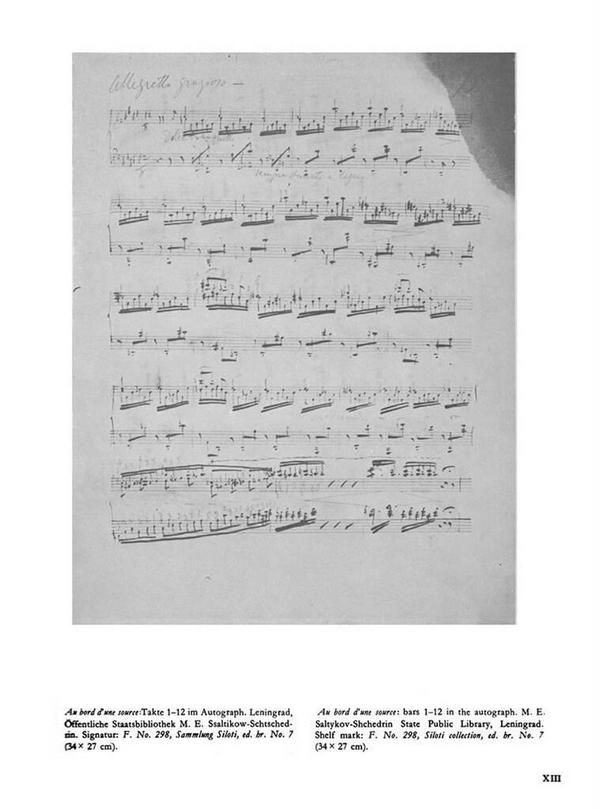 Allegretto grazioso —
Au bord d'une source: Takte 1–12 im Autograph. Leningrad,
Öffentliche Staatsbibliothek M. E. Ssaltikow-Schtsched-
rin. Signatur: F. No. 298, Sammlung Siloti, ed. hr. No. 7
(34 × 27 cm).
Au bord d'une source: bars 1–12 in the autograph. M. E.
Saltykov-Shchedrin State Public Library, Leningrad.
Shelf mark: F. No. 298, Siloti collection, ed. hr. No. 7
(34 × 27 cm).
XIII